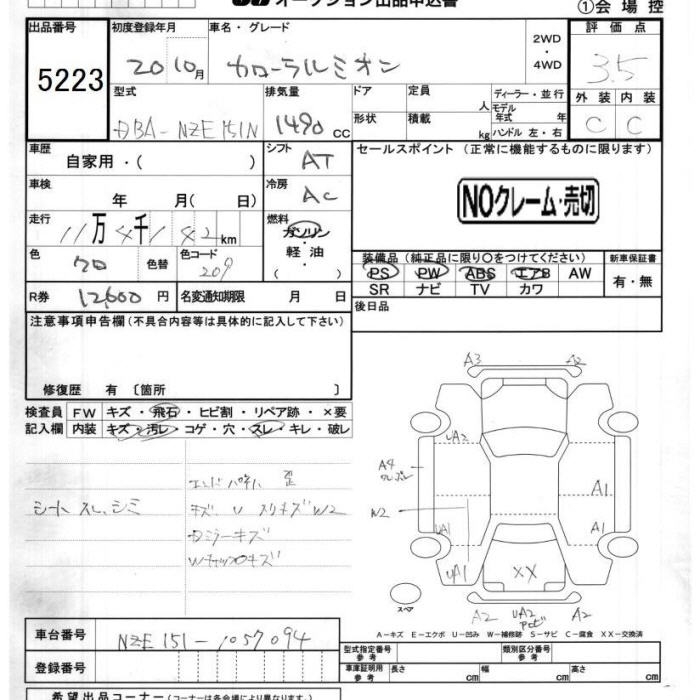 オークション出品申込書
①会場控
出品番号 初度登録年月 車名・グレード 2WD・4WD 評価点
5223 20 10月 カローラルミオン 3.5
型式 排気量 ドア 定員 人 ディーラー・並行 外装 内装
DBA-NZE151N 1490 cc 形状 積載 kg モデル年式 年 ハンドル 左・右 C C
車歴 自家用・( ) シフト AT セールスポイント (正常に機能するものに限ります)
車検 年 月( 日) 冷房 AC
NOクレーム・売切
走行 11万4千142km 燃料 ガソリン 軽油 ( )
色 クロ 色替 色コード 209
装備品 (純正品に限り○をつけてください) 新車保証書
PS PW ABS エアB AW 有・無
SR ナビ TV カワ
R券 12600円 名変通知期限 月 日
後日品
注意事項申告欄 (不具合内容等は具体的に記入して下さい)
修復歴 有 〔箇所 〕
検査員 FW キズ・飛石・ヒビ割・リペア跡・×要
記入欄 内装 キズ・汚レ・コゲ・穴・スレ・キレ・破レ
シート スレ、シミ
キズ U スリキズ W2
ミラーキズ
A3 A2
UA2
A4
W2
A1
UA1 A1
UA1
XX
スペア
A2 UA2 A2
A－キズ E－エクボ U－凹み W－補修跡 S－サビ C－腐食 XX－交換済
車台番号 NZE151-1057094
登録番号
型式指定番号 類別区分番号
車庫証明用参考 長さ cm 幅 cm 高さ cm
希望出品コーナー (コーナーは各会場により異なります。)